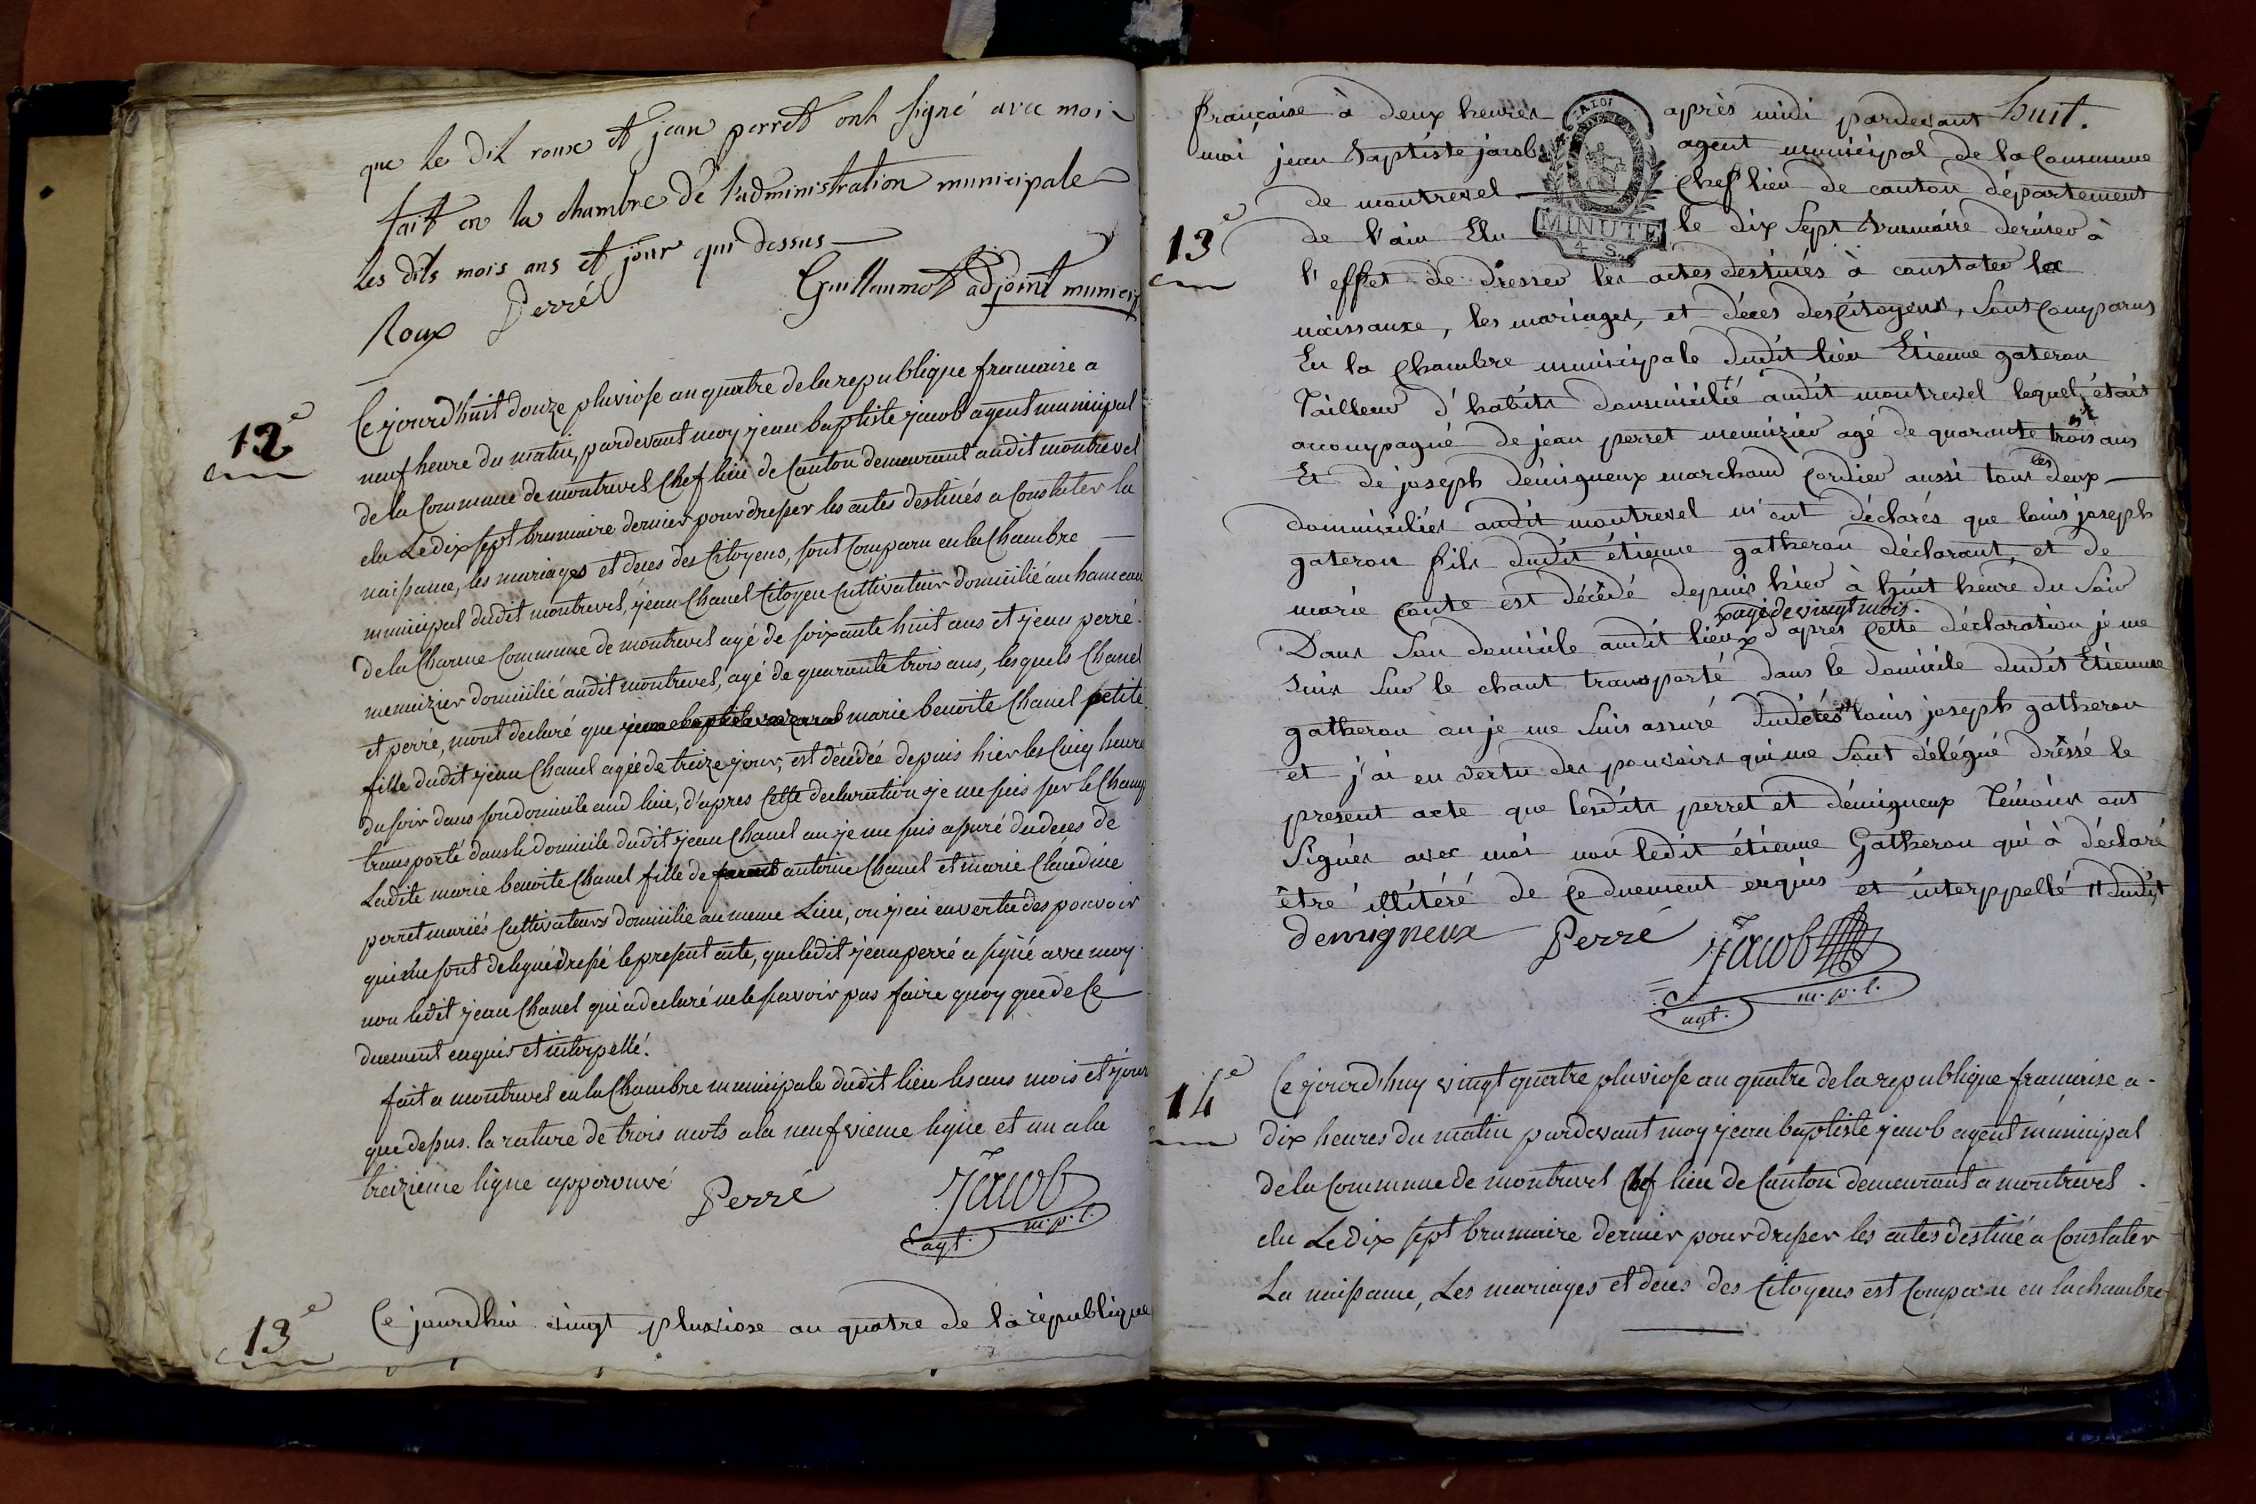 que le dit roux et jean perret ont signé avec moi
fait en la chambre de l'administration municipale
les dits mois ans et jour que dessus
Roux Perré Guillaumot adjoint municip
12e
Cejourd'huit douze pluviose an quatre de la republique francaise a
neuf heure du matin, pardevant moy jean baptiste jacob agent municipal
de la Commune de montrevel Chef lieu de Canton demeurant audit montrevel
elu Le dix sept brumaire dernier pour dresser les actes destinés a Constater la
naissance, les mariages et deces des Citoyens, sont Comparu en la Chambre
municipal dudit montrevel, jean Chanel Citoyen Cultivateur domicilié au hameau
de la Charme Commune de montrevel agé de soixante huit ans et jean perré
menuizier domicilié audit montrevel, agé de quarante trois ans, lesquels Chanel
et perré, m'ont declaré que marie benoite Chanel petite
fille dudit jean Chanel agée de treize jour, est décédée depuis hier les Cinq heure
du soir dans son domicile aud lieu, d'apres Cette declaration je me suis sur le Champ
transporté dans le domicile dudit jean Chanel ou je me suis assuré du deces de
Ladite marie benoite Chanel fille de antoine Chanel et marie Claudine
perret mariés Cultivateurs domicilié au meme Lieu, ou j'ai en vertu des pouvoir
qui me sont delegué dressé le present acte, que ledit jean perré a signé avec moy
non ledit jean Chanel qui a declaré ne le savoir pas faire quoy que de Ce
duement enquis et interpellé.
fait a montrevel en la Chambre municipale dudit lieu les ans mois et jour
que dessus. la rature de trois mots a la neufvieme ligne et un a la
treizieme ligne approuvé
Perré Jacob
agt. m.p.l.
13e
Ce jourdhui vingt pluviose an quatre de la république
huit.
française à deux heures après midi pardevant
moi jean baptiste jacob agent municipal de la Commune
de montrevel Chef lieu de canton département
A LOI
MINUTE
4 S.
13e
de l'ain Elu le dix sept brumaire dernier à
l'effet de dresser les actes destinés à constater la
naissance, les mariages, et décès des Citoyens, sont Comparus
En la Chambre municipale dudit lieu Etienne gateron
Tailleur d'habits domicilié audit montrevel lequel était
accompagné de jean perret menuizier agé de quarante trois ans
Et de joseph démigneux marchand cordier aussi tous les deux
domiciliés audit montrevel m'ont déclarés que louis joseph
gateron fils dudit étienne gatheron déclarant, et de
marie conte est décédé depuis hier à huit heure du soir
x agé de vingt mois.
Dans son domicile audit lieu x d'après cette déclaration je me
suis sur le chant transporté dans le domicile dudit Etienne
gatheron ou je me suis assuré du décés dud louis joseph gatheron
et j'ai en vertu des pouvoirs qui me sont délégué dressé le
present acte que lesdits perret et démigneux Témoins ont
signés avec moi non ledit étienne Gatheron qui à déclaré
être illitéré de ce duement enquis et interppellé
demigneux Perré Jacob
agt. m.p.l.
14e
Ce jourd'huy vingt quatre pluviose an quatre de la republique francaise a
dix heures du matin pardevant moy jean baptiste jacob agent municipal
de la Commune de montrevel Chef lieu de Canton demeurant a montrevel
elu Le dix sept brumaire dernier pour dresser les actes destiné a Constater
La naissance, Les mariages et deces des Citoyens est Comparu en la chambre